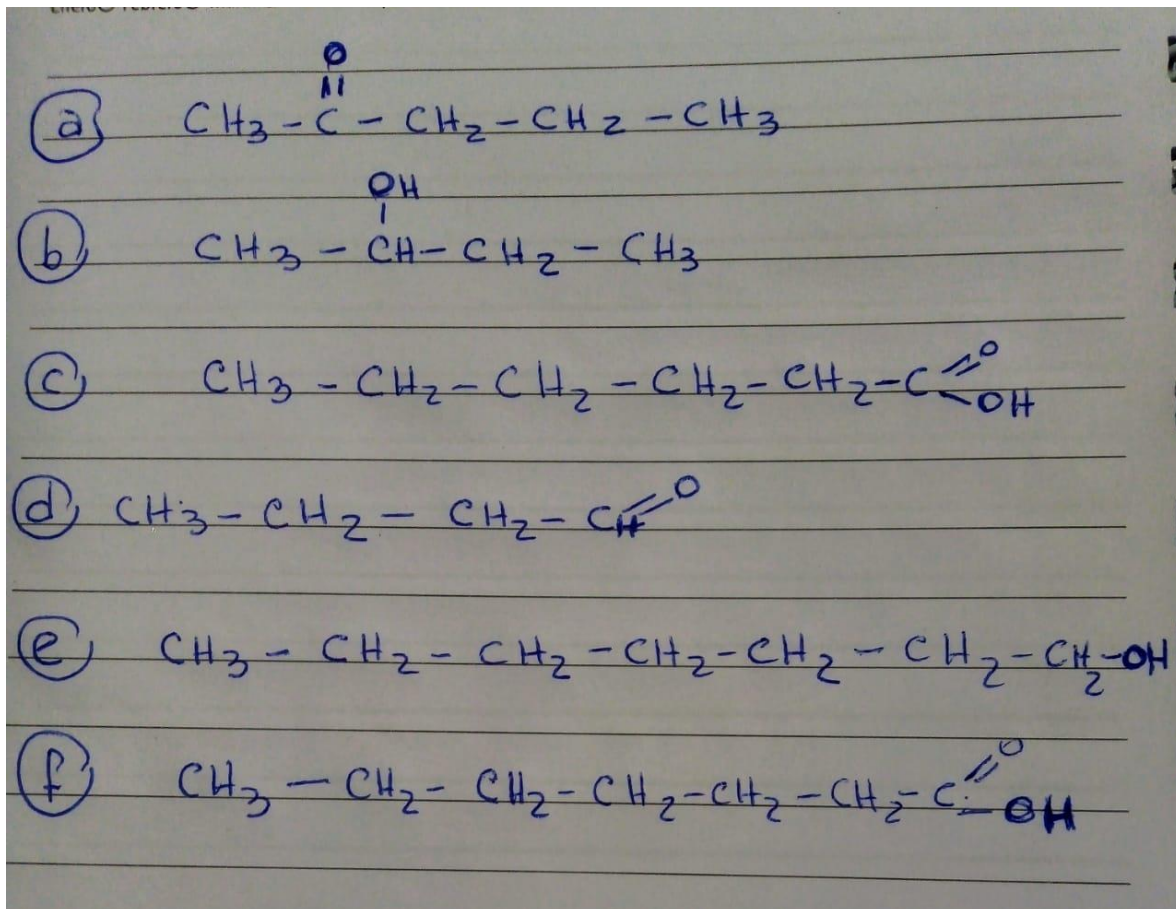 O
||
a) CH3 - C - CH2 - CH2 - CH3
OH
|
b) CH3 - CH - CH2 - CH3
c) CH3 - CH2 - CH2 - CH2 - CH2 - C =O -OH
d) CH3 - CH2 - CH2 - CH =O
e) CH3 - CH2 - CH2 - CH2 - CH2 - CH2 - CH2 - OH
f) CH3 - CH2 - CH2 - CH2 - CH2 - CH2 - C =O - OH